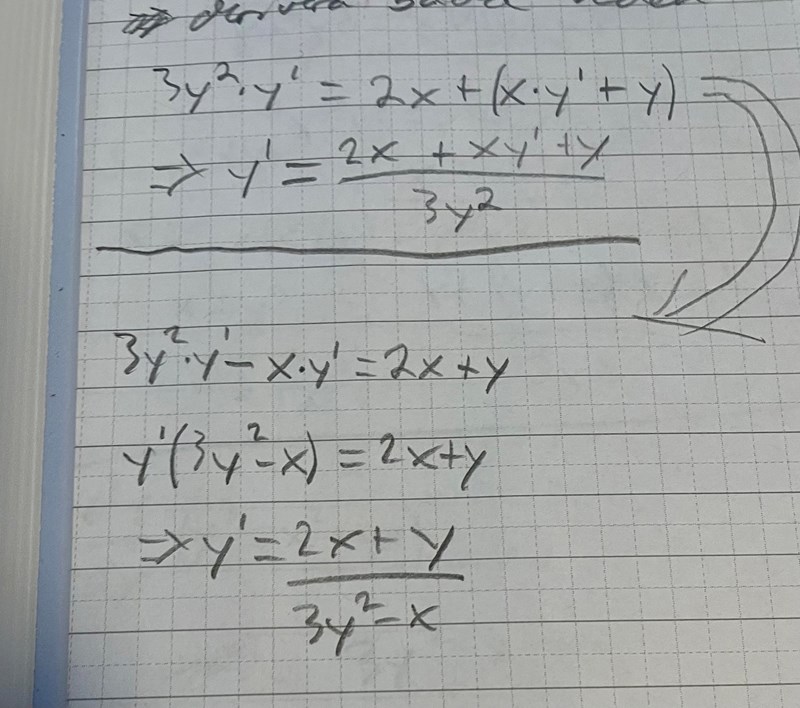 3y²·y' = 2x + (x·y' + y)
⇒ y' = (2x + xy' + y) / 3y²
3y²·y' - x·y' = 2x + y
y'(3y² - x) = 2x + y
⇒ y' = (2x + y) / (3y² - x)